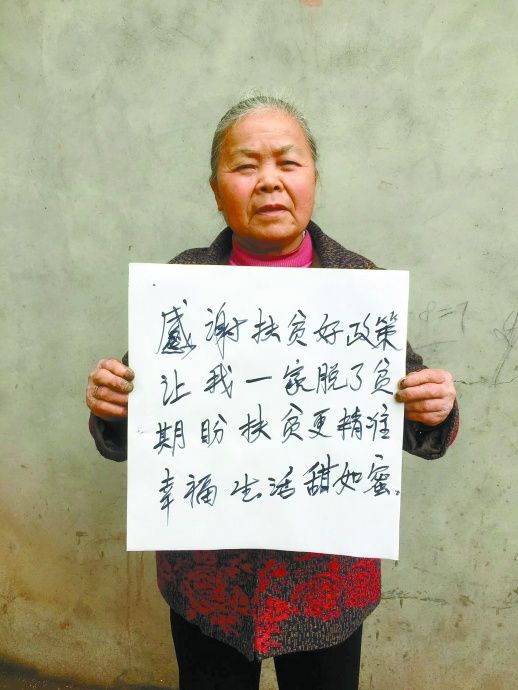 感谢扶贫好政策
让我一家脱了贫
期盼扶贫更精准
幸福生活甜如蜜。
8=7